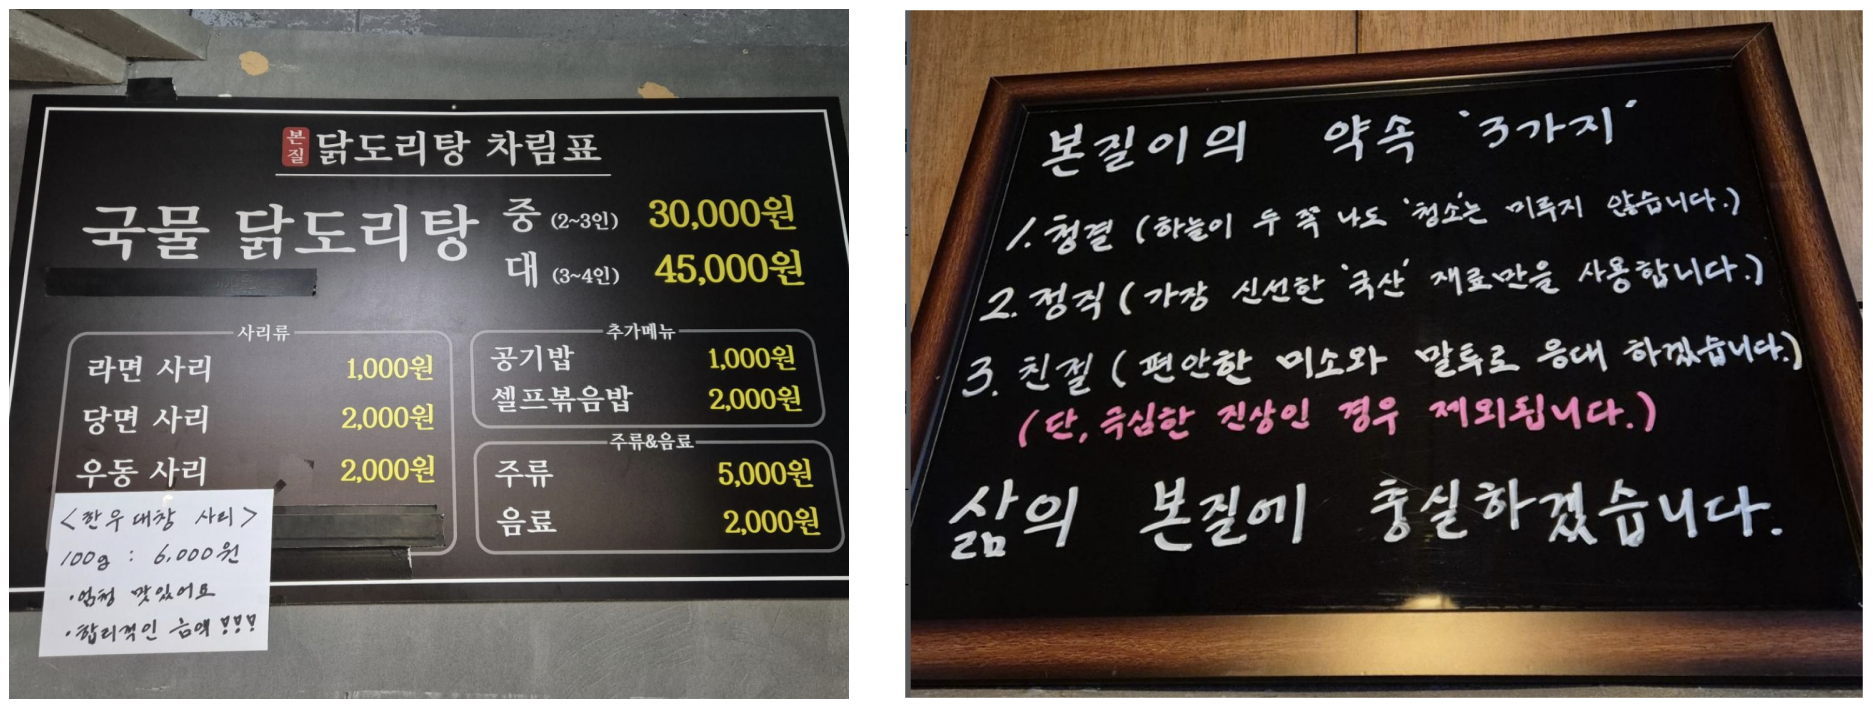 본질 닭도리탕 차림표
국물 닭도리탕 중 (2~3인) 30,000원
대 (3~4인) 45,000원
사리류
라면 사리 1,000원
당면 사리 2,000원
우동 사리 2,000원
<한우대창 사리>
100g : 6,000원
·엄청 맛있어요
·합리적인 금액!!!
추가메뉴
공기밥 1,000원
셀프볶음밥 2,000원
주류&음료
주류 5,000원
음료 2,000원
본질이의 약속 '3가지'
1. 청결 (하늘이 두 쪽 나도 '청소'는 미루지 않습니다.)
2. 정직 (가장 신선한 '국산' 재료만을 사용합니다.)
3. 친절 (편안한 미소와 말투로 응대 하겠습니다.)
(단, 극심한 진상인 경우 제외됩니다.)
삶의 본질에 충실하겠습니다.